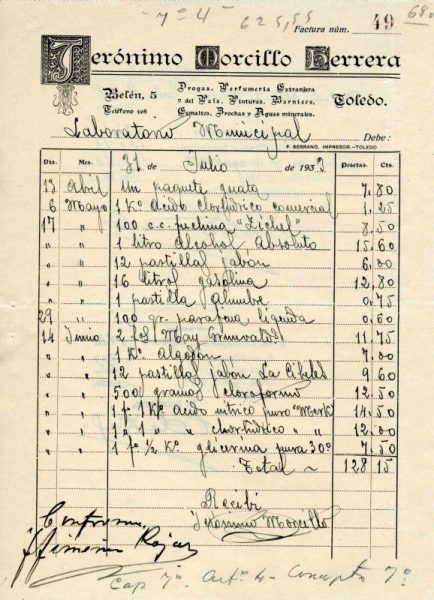 7º 4º 625,55
Factura núm. 49 68
Jerónimo Morcillo Herrera
Belén, 5
Teléfono 108
Drogas, Perfumería Extranjera
y del País, Pinturas, Barnices,
Esmaltes, Brochas y Aguas minerales.
Toledo.
Laboratorio Municipal Debe:
F. SERRANO. IMPRESOR.-TOLEDO
Día. Mes. 31 de Julio de 1933 Pesetas Cts.
13 Abril Un paquete guata 7.80
6 Mayo 1 Kº acido clorhidrico comercial 1.25
17 " 100 c.c. fuchina "Ziehel" 8.50
" " 1 litro alcohol absoluto 15.60
" " 12 pastillas jabon 6.00
" " 16 litros gasolina 12.80
" " 1 pastilla alumbre 0.75
29 " 100 gr. parafina liquida 0.60
14 Junio 2 May Grunwald 11.75
" " 1 Kº Algodon 7.00
" " 12 pastillas jabon La Cibeles 9.60
" " 500 gramos cloroformo 12.50
" " 1 fº 1 Kº acido nitrico puro "Merk" 14.50
" " 1 " 1 " " clorhidrico " " 12.00
" " 1 fº ½ Kº glicerina pura 30º 7.50
Total 128 15
Recibi
Jeronimo Morcillo
Conforme,
Jimenez Rojas
Cap 7º. Artº 4 Concepto 7º